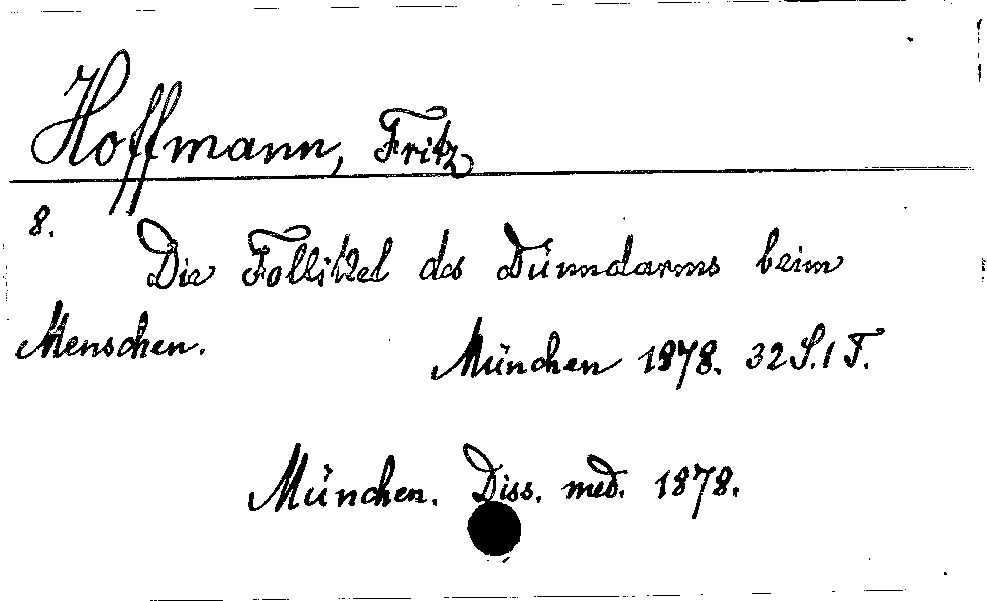 Hoffmann, Fritz
8.
Die Follikel des Dünndarms beim
Menschen.
München 1878. 32 S. 1 T.
München. Diss. med. 1878.